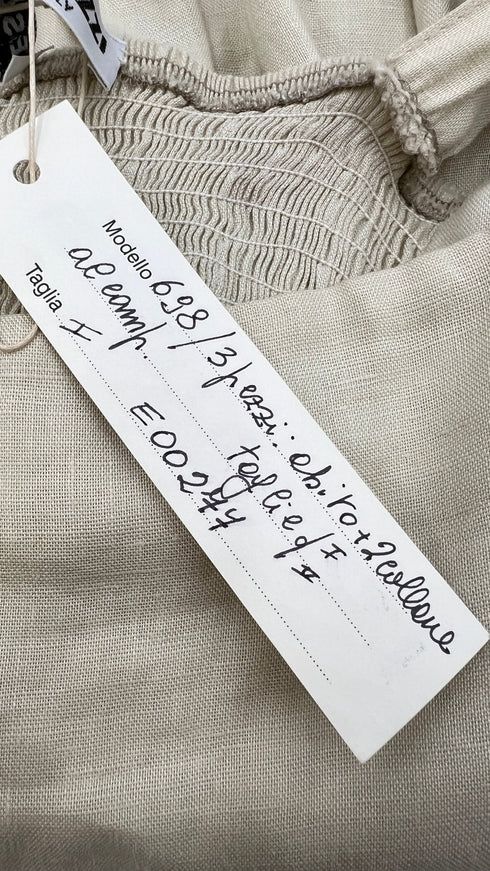 Modello 698/3 pezzi: abito + 2 collane
al camp. taglie I
Taglia I
E00277